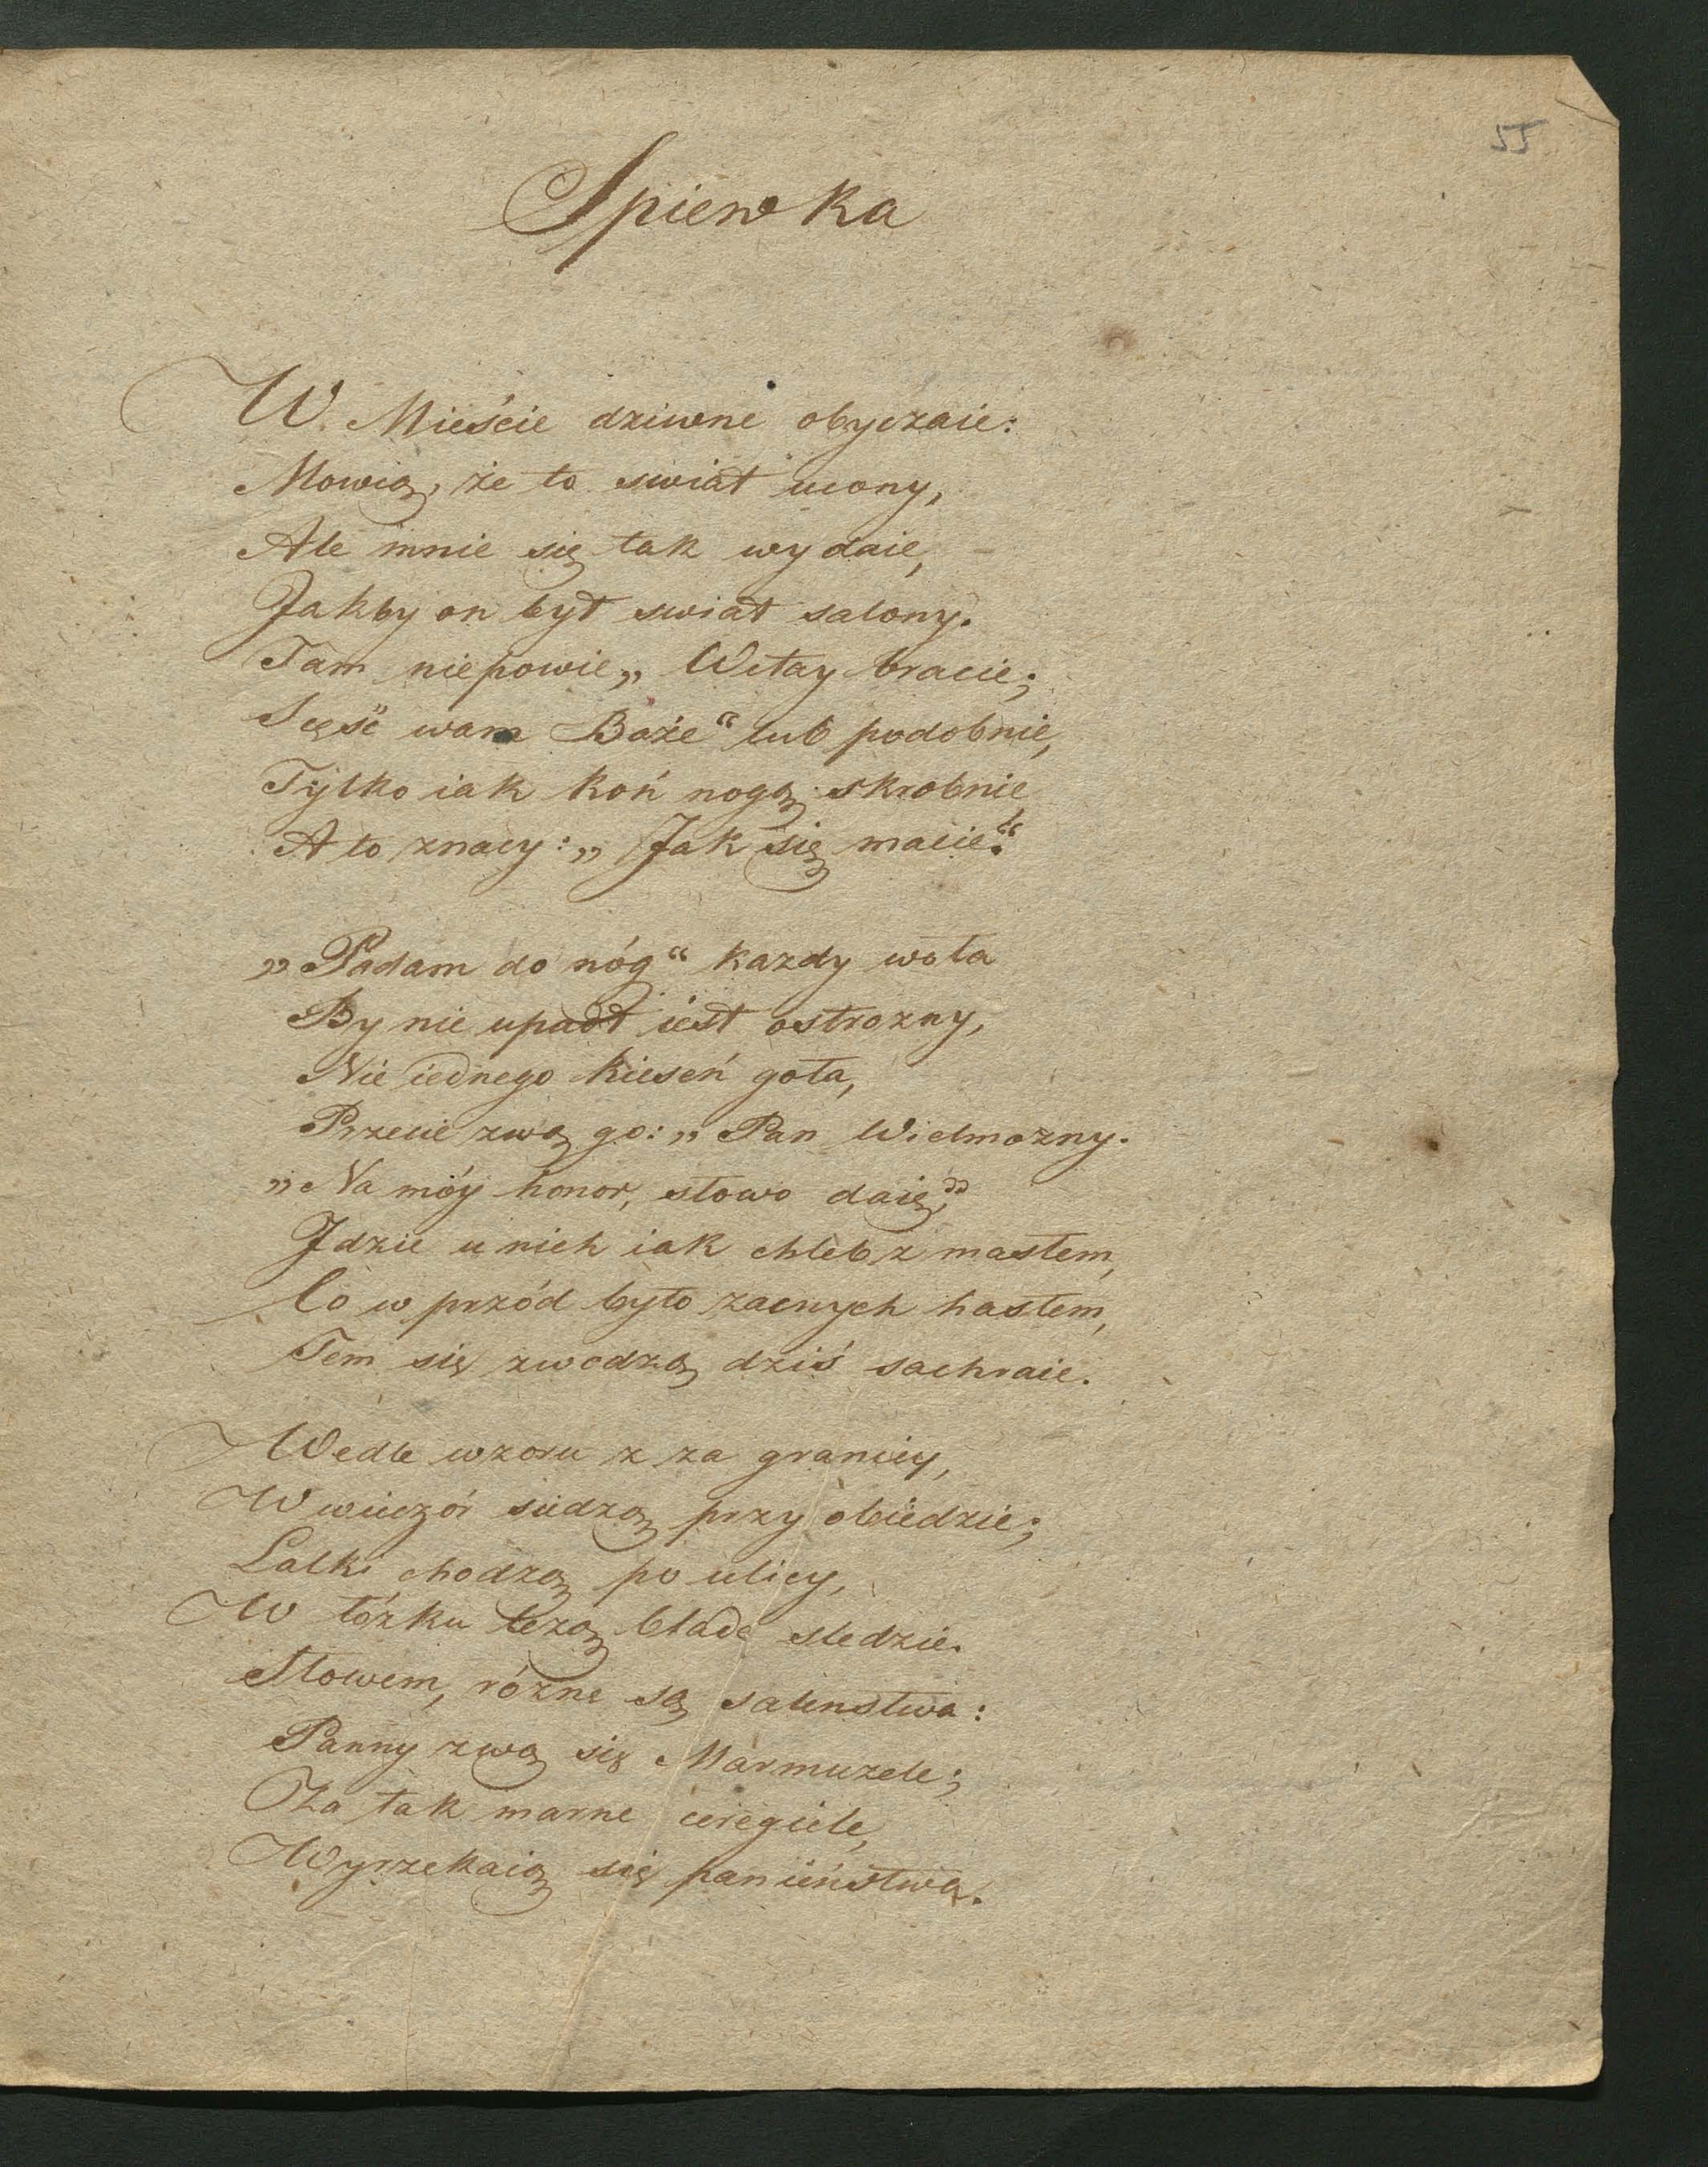 55
Spiewka
W Mieście dziwne obyczaie:
Mowią, że to swiat ucony,
Ale mnie się tak wydaie,
Jakby on był swiat salony.
Tam niepowie „Witay bracie;
Scęść wam Boże“ lub podobnie,
Tylko iak koń nogą skrobnie
A to znacy: „Jak się macie.“
„Padam do nóg“ kazdy woła
By nie upadł iest ostrozny,
Nie iednego kieseń goła,
Przecie zwą go: „Pan Wielmozny.
„Na móy honor, słowo daię,”
Jdzie u nich iak chleb z masłem,
Co w przód było zacnych hasłem,
Tem się zwodzą dziś sachraie.
Wedle wzoru z za granicy,
W wieczór siedzą przy obiedzie;
Lalki chodzą po ulicy,
W łóżku leżą blade sledzie.
Słowem, rózne są saleństwa:
Panny zwą się Marmuzele;
Za tak marne ceregiele,
Wyrzekaią się panieństwa.